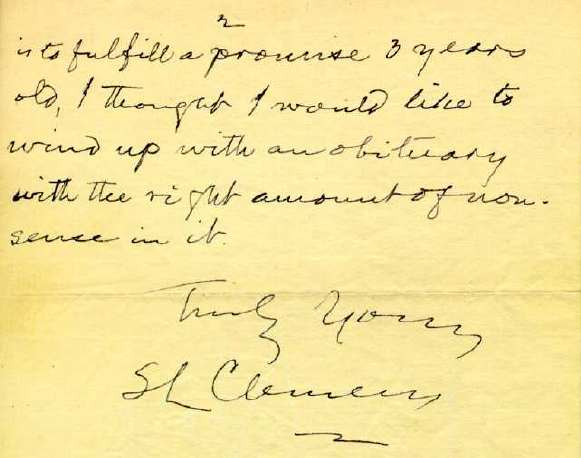 2
is to fulfill a promise 3 years
old, I thought I would like to
wind up with an obituary
with the right amount of non-
sense in it.
Truly Yours
SL Clemens